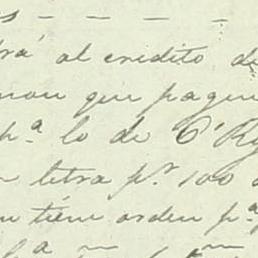 s - - - -
rá al credito de
nou que pague
p.ª lo de O'Ry
n letra p.r 100 d
u tiene orden p.ª